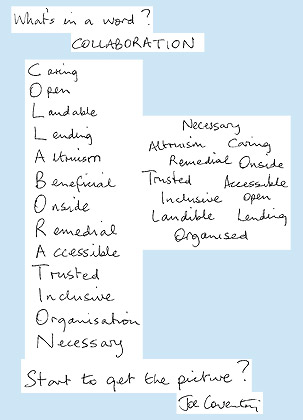 What's in a word?
COLLABORATION
Caring
Open
Laudable
Lending
Altruism
Beneficial
Onside
Remedial
Accessible
Trusted
Inclusive
Organisation
Necessary
Necessary
Altruism Caring
Remedial Onside
Trusted Accessible
Inclusive Open
Landible Lending
Organised
Start to get the picture?
Joe Coventry